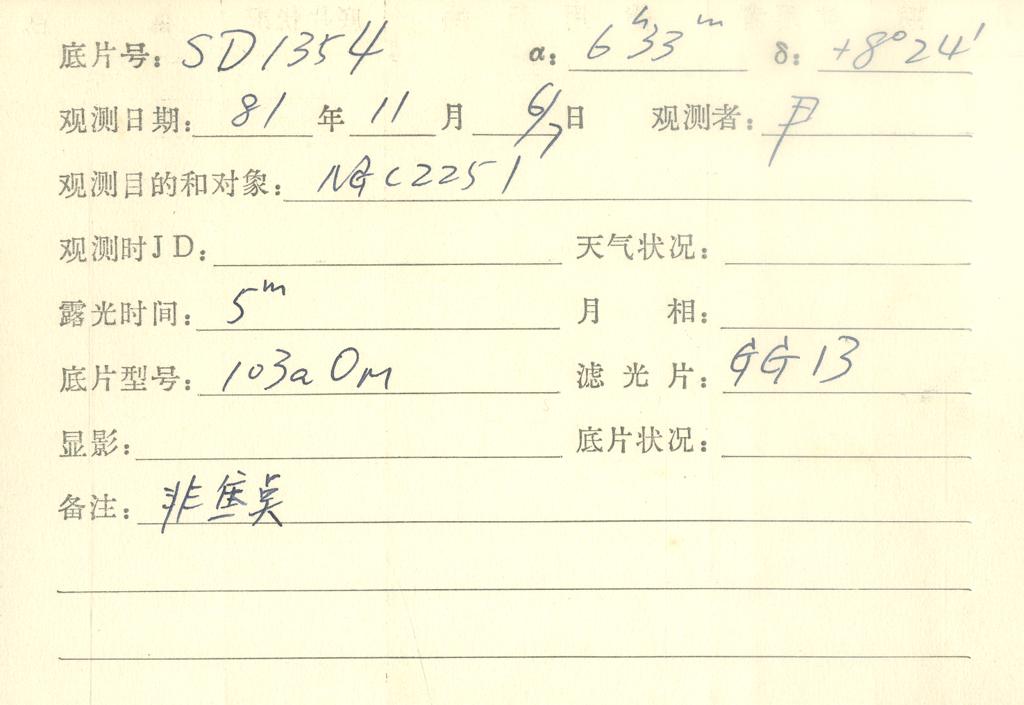 底片号: SD1354 α: 6ʰ33ᵐ δ: +8°24′
观测日期: 81 年 11 月 6/7 日 观测者: 尹
观测目的和对象: NGC2251
观测时JD: 天气状况:
露光时间: 5ᵐ 月 相:
底片型号: 103aOM 滤 光 片: GG13
显影: 底片状况:
备注: 非焦点